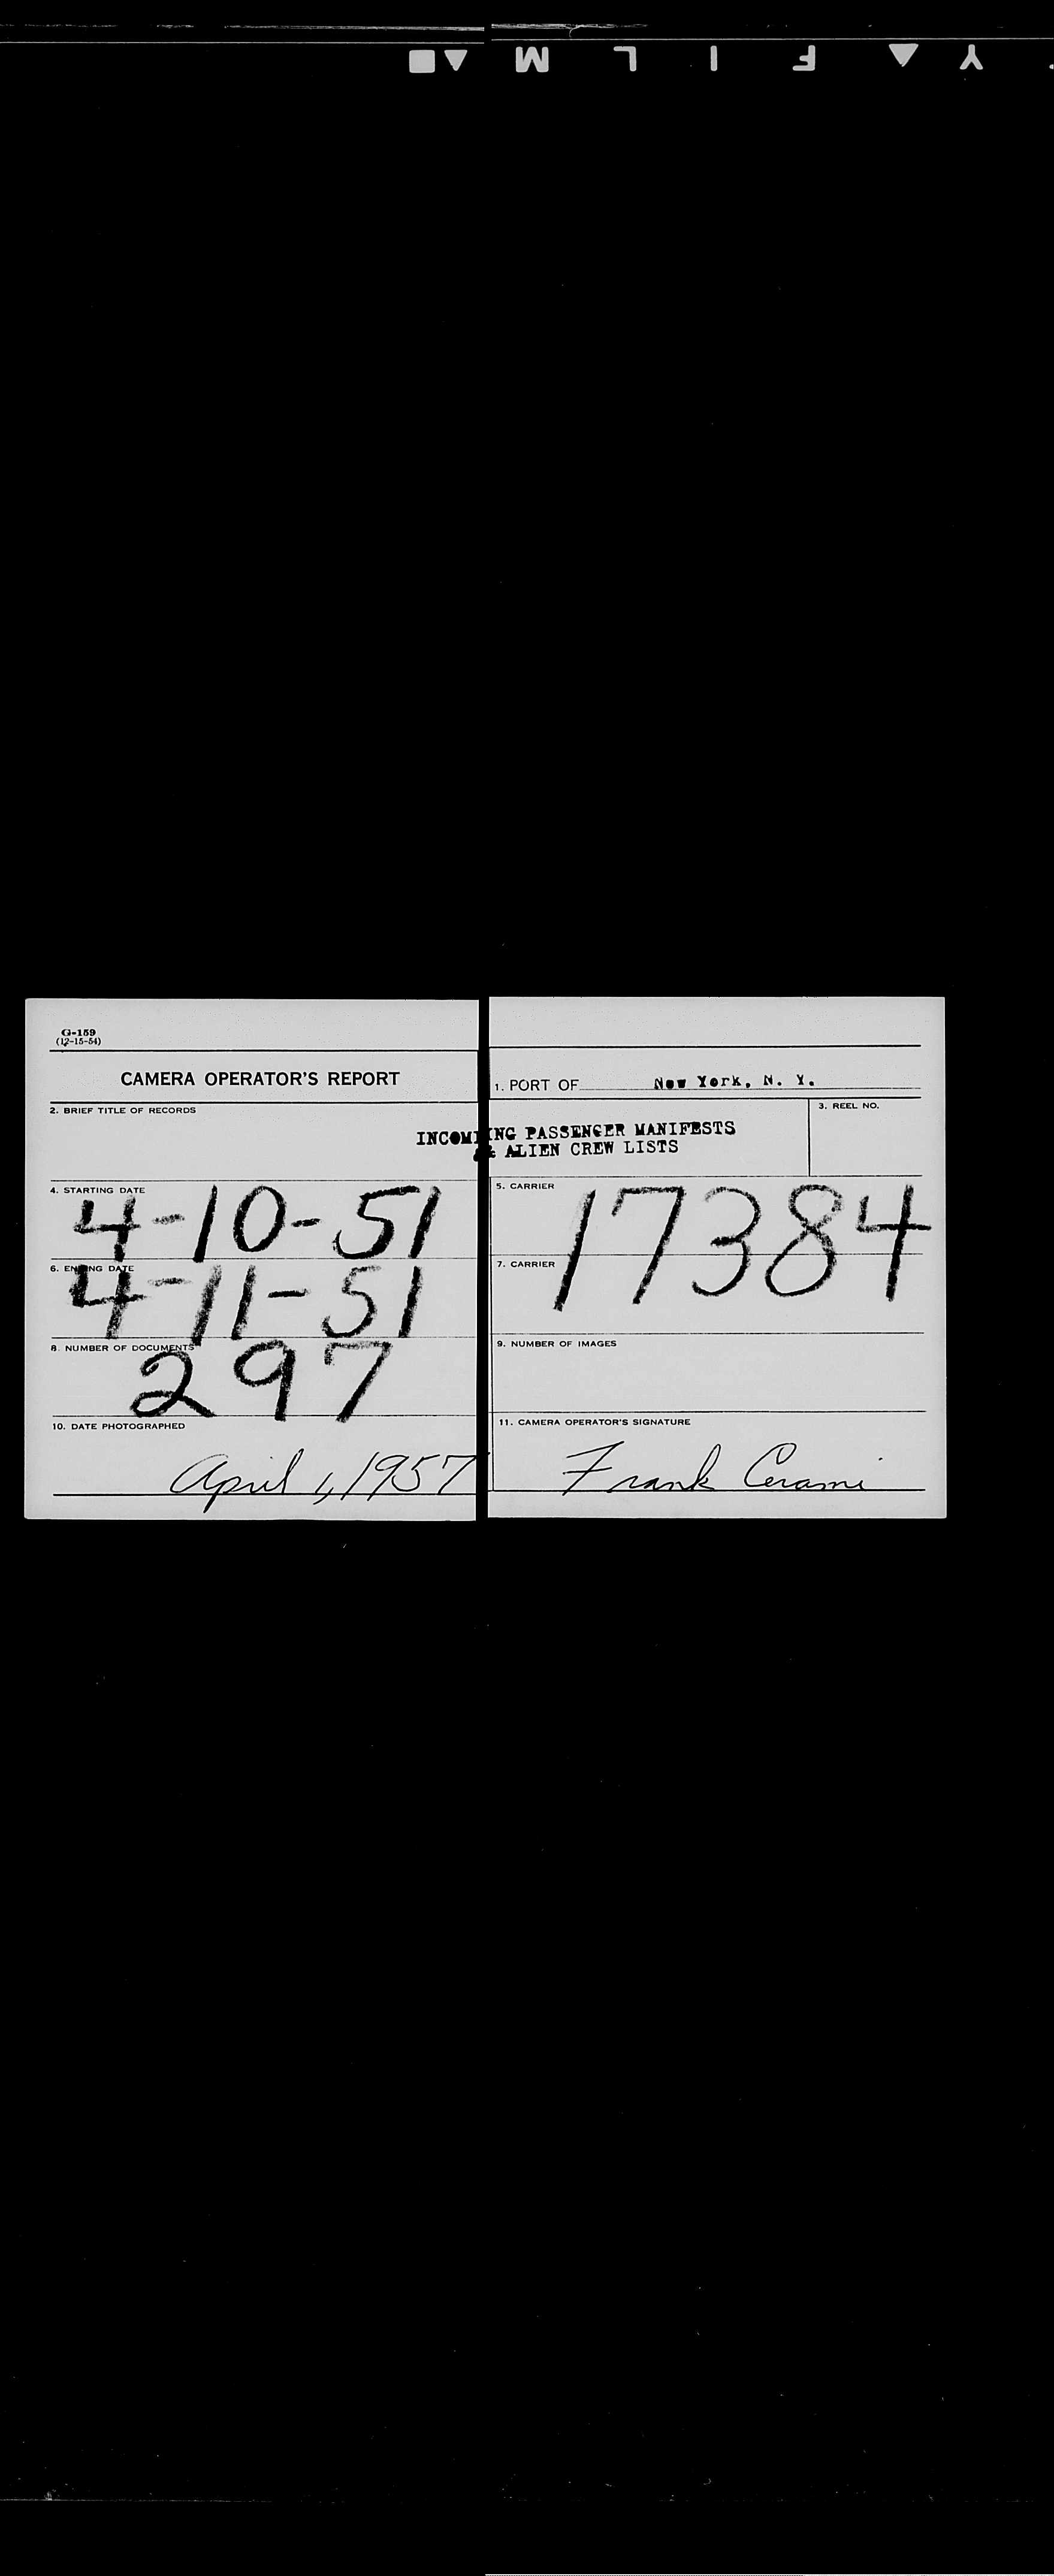 Y FILM
G-159
(12-15-54)
CAMERA OPERATOR'S REPORT
1. PORT OF New York, N. Y.
2. BRIEF TITLE OF RECORDS
3. REEL NO.
INCOMING PASSENGER MANIFESTS
& ALIEN CREW LISTS
4. STARTING DATE
4-10-51
5. CARRIER
17384
6. ENDING DATE
4-11-51
7. CARRIER
8. NUMBER OF DOCUMENTS
297
9. NUMBER OF IMAGES
10. DATE PHOTOGRAPHED
April 1, 1957
11. CAMERA OPERATOR'S SIGNATURE
Frank Cerami